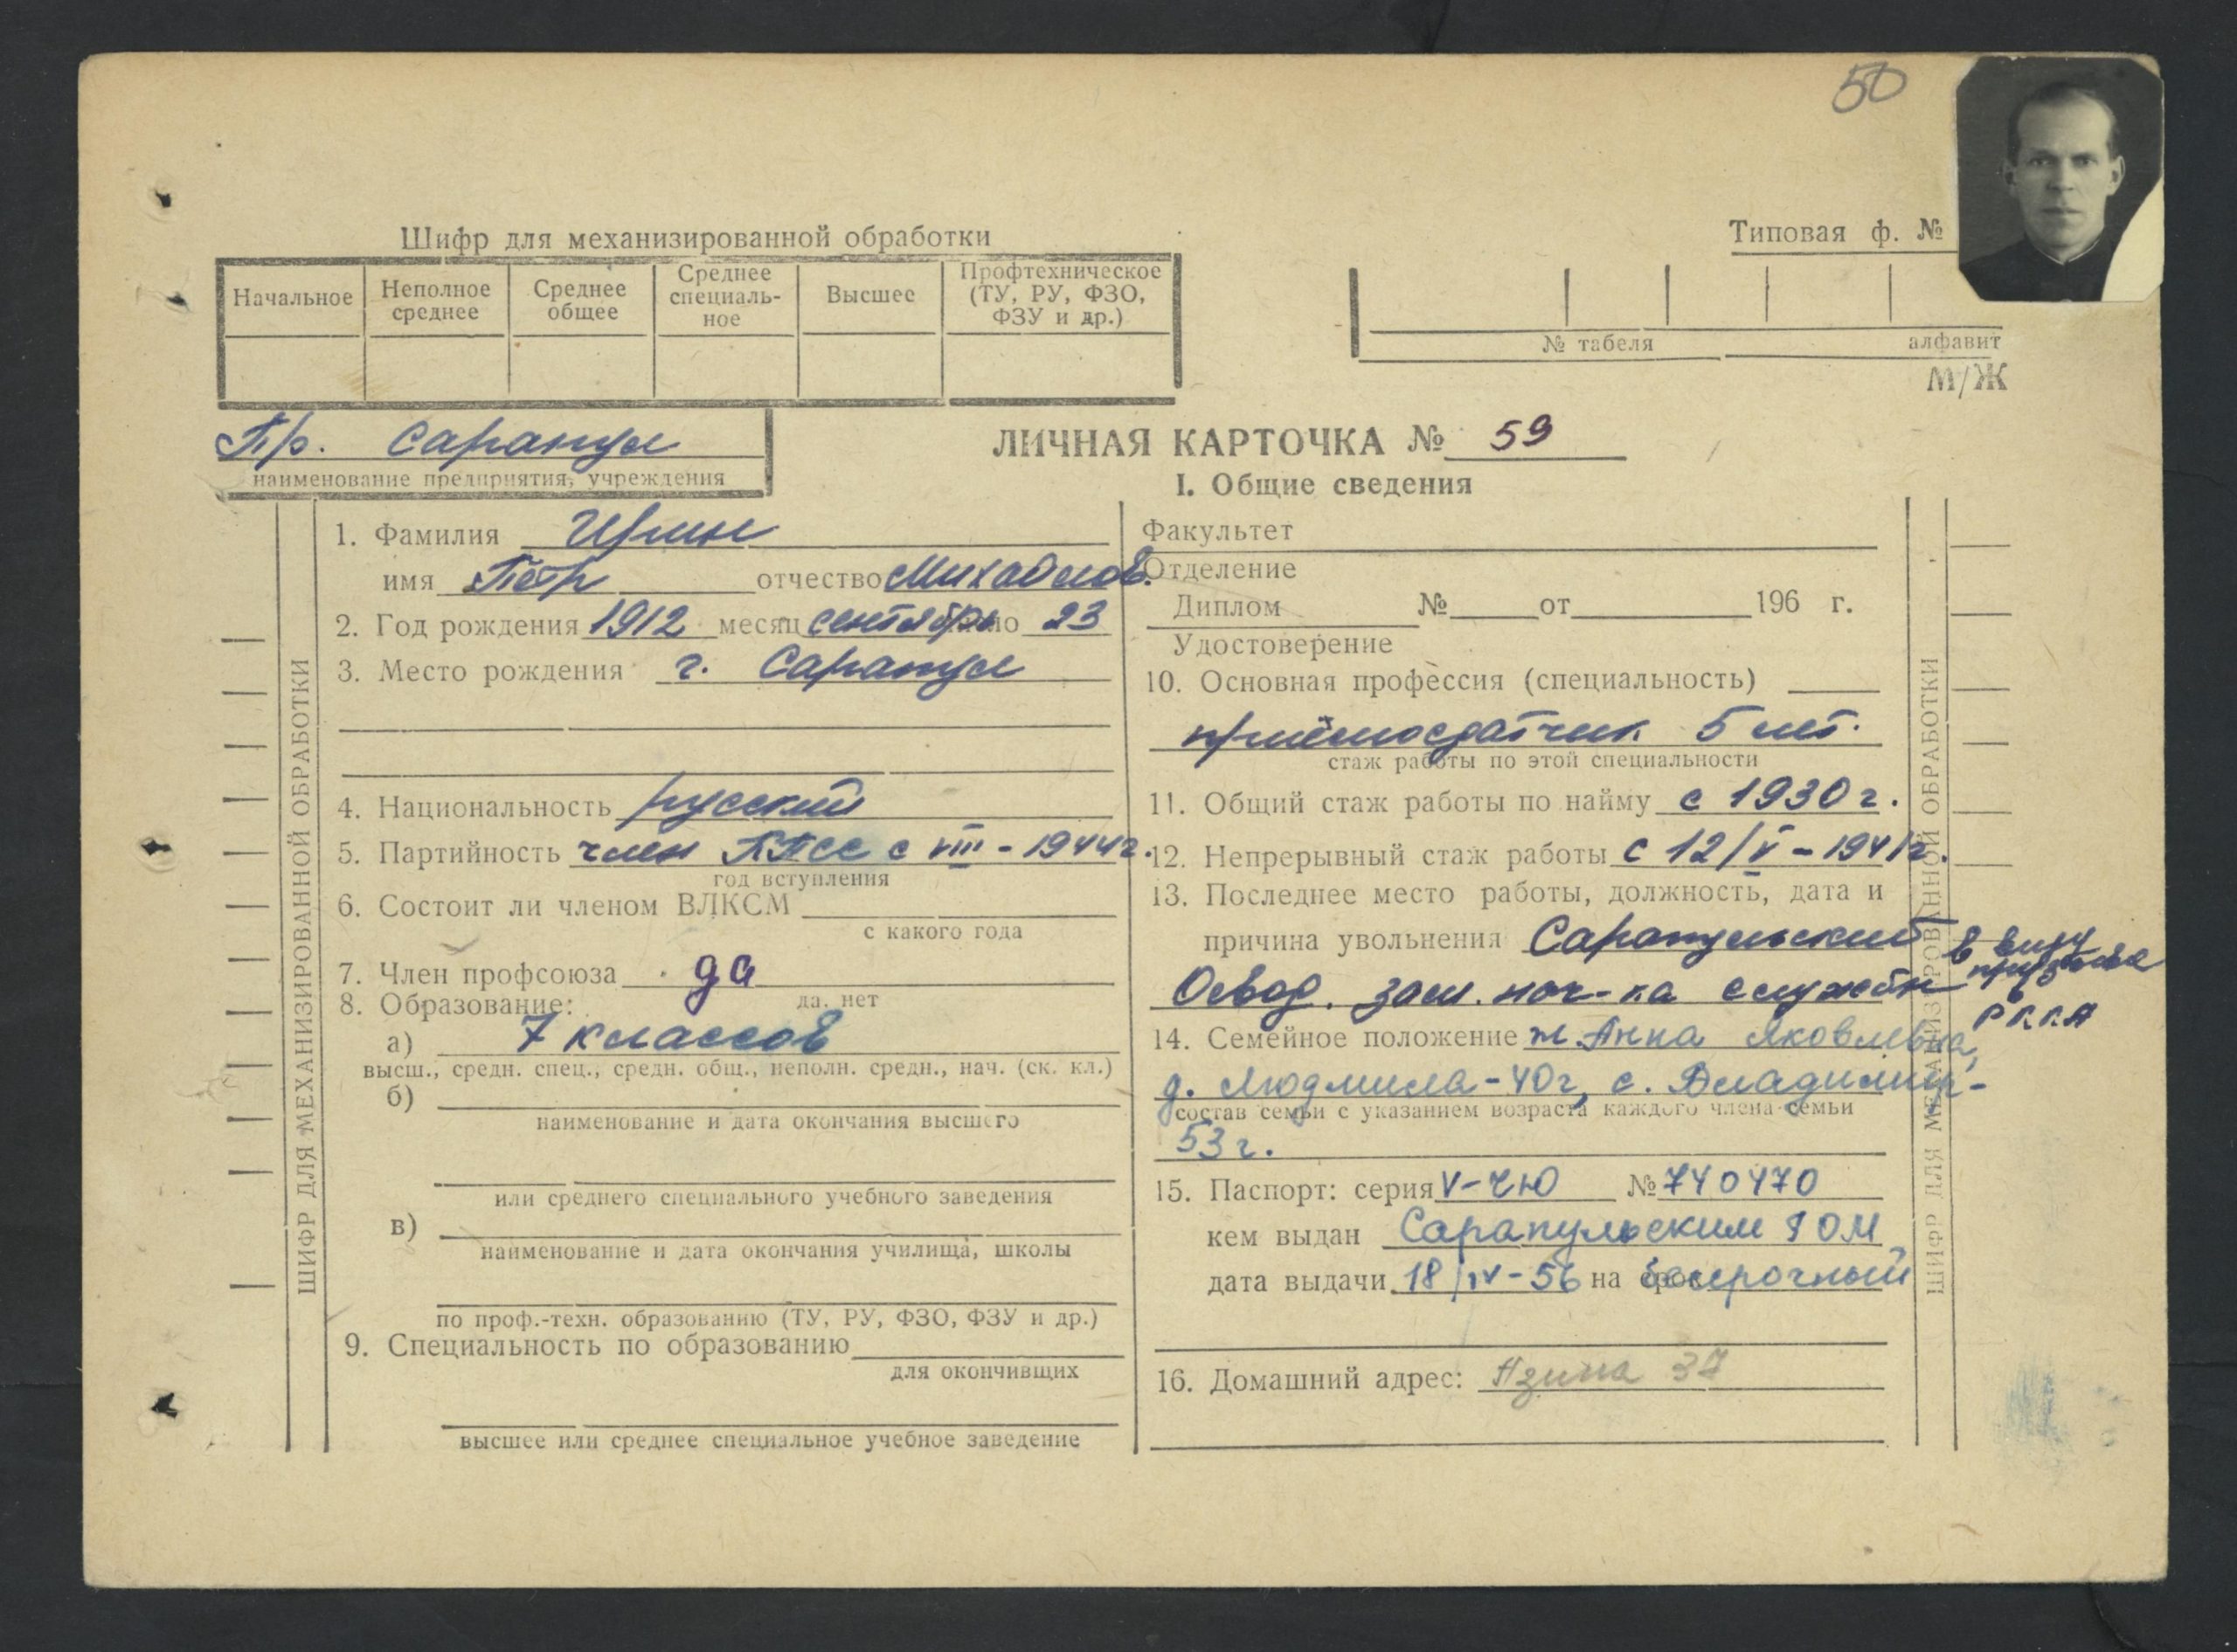 50
Шифр для механизированной обработки
Типовая ф. №
Начальное
Неполное среднее
Среднее общее
Среднее специаль-ное
Высшее
Профтехническое (ТУ, РУ, ФЗО, ФЗУ и др.)
№ табеля
алфавит
М/Ж
Пр. Сарапул
наименование предприятия, учреждения
ЛИЧНАЯ КАРТОЧКА № 59
I. Общие сведения
ШИФР ДЛЯ МЕХАНИЗИРОВАННОЙ ОБРАБОТКИ
1. Фамилия
имя Пётр отчество Михайлов.
2. Год рождения 1912 месяц сентябрь число 23
3. Место рождения г. Сарапул
4. Национальность русский
5. Партийность член КПСС с VIII - 1944 г.
год вступления
6. Состоит ли членом ВЛКСМ
с какого года
7. Член профсоюза да
да. нет
8. Образование:
а) 7 классов
высш., средн. спец., средн. общ., неполн. средн., нач. (ск. кл.)
б)
наименование и дата окончания высшего
или среднего специального учебного заведения
в)
наименование и дата окончания училища, школы
по проф.-техн. образованию (ТУ, РУ, ФЗО, ФЗУ и др.)
9. Специальность по образованию
для окончивщих
высшее или среднее специальное учебное заведение
Факультет
Отделение
Диплом № от 196 г.
Удостоверение
10. Основная профессия (специальность)
приёмосдатчик 5 лет.
стаж работы по этой специальности
11. Общий стаж работы по найму с 1930 г.
12. Непрерывный стаж работы с 12/V - 1941 г.
13. Последнее место работы, должность, дата и
причина увольнения Сарапульский
Освод. зам. нач-ка службы
в виду
призыва
в
РККА
14. Семейное положение ж. Анна Яковлевна,
д. Людмила - 40 г, с. Владимир -
состав семьи с указанием возраста каждого члена семьи
53 г.
15. Паспорт: серия V-ЧЮ № 740470
кем выдан Сарапульским ГОМ
дата выдачи 18/IV - 56 на срок бессрочный
16. Домашний адрес: Азина 37
ШИФР ДЛЯ МЕХАНИЗИРОВАННОЙ ОБРАБОТКИ